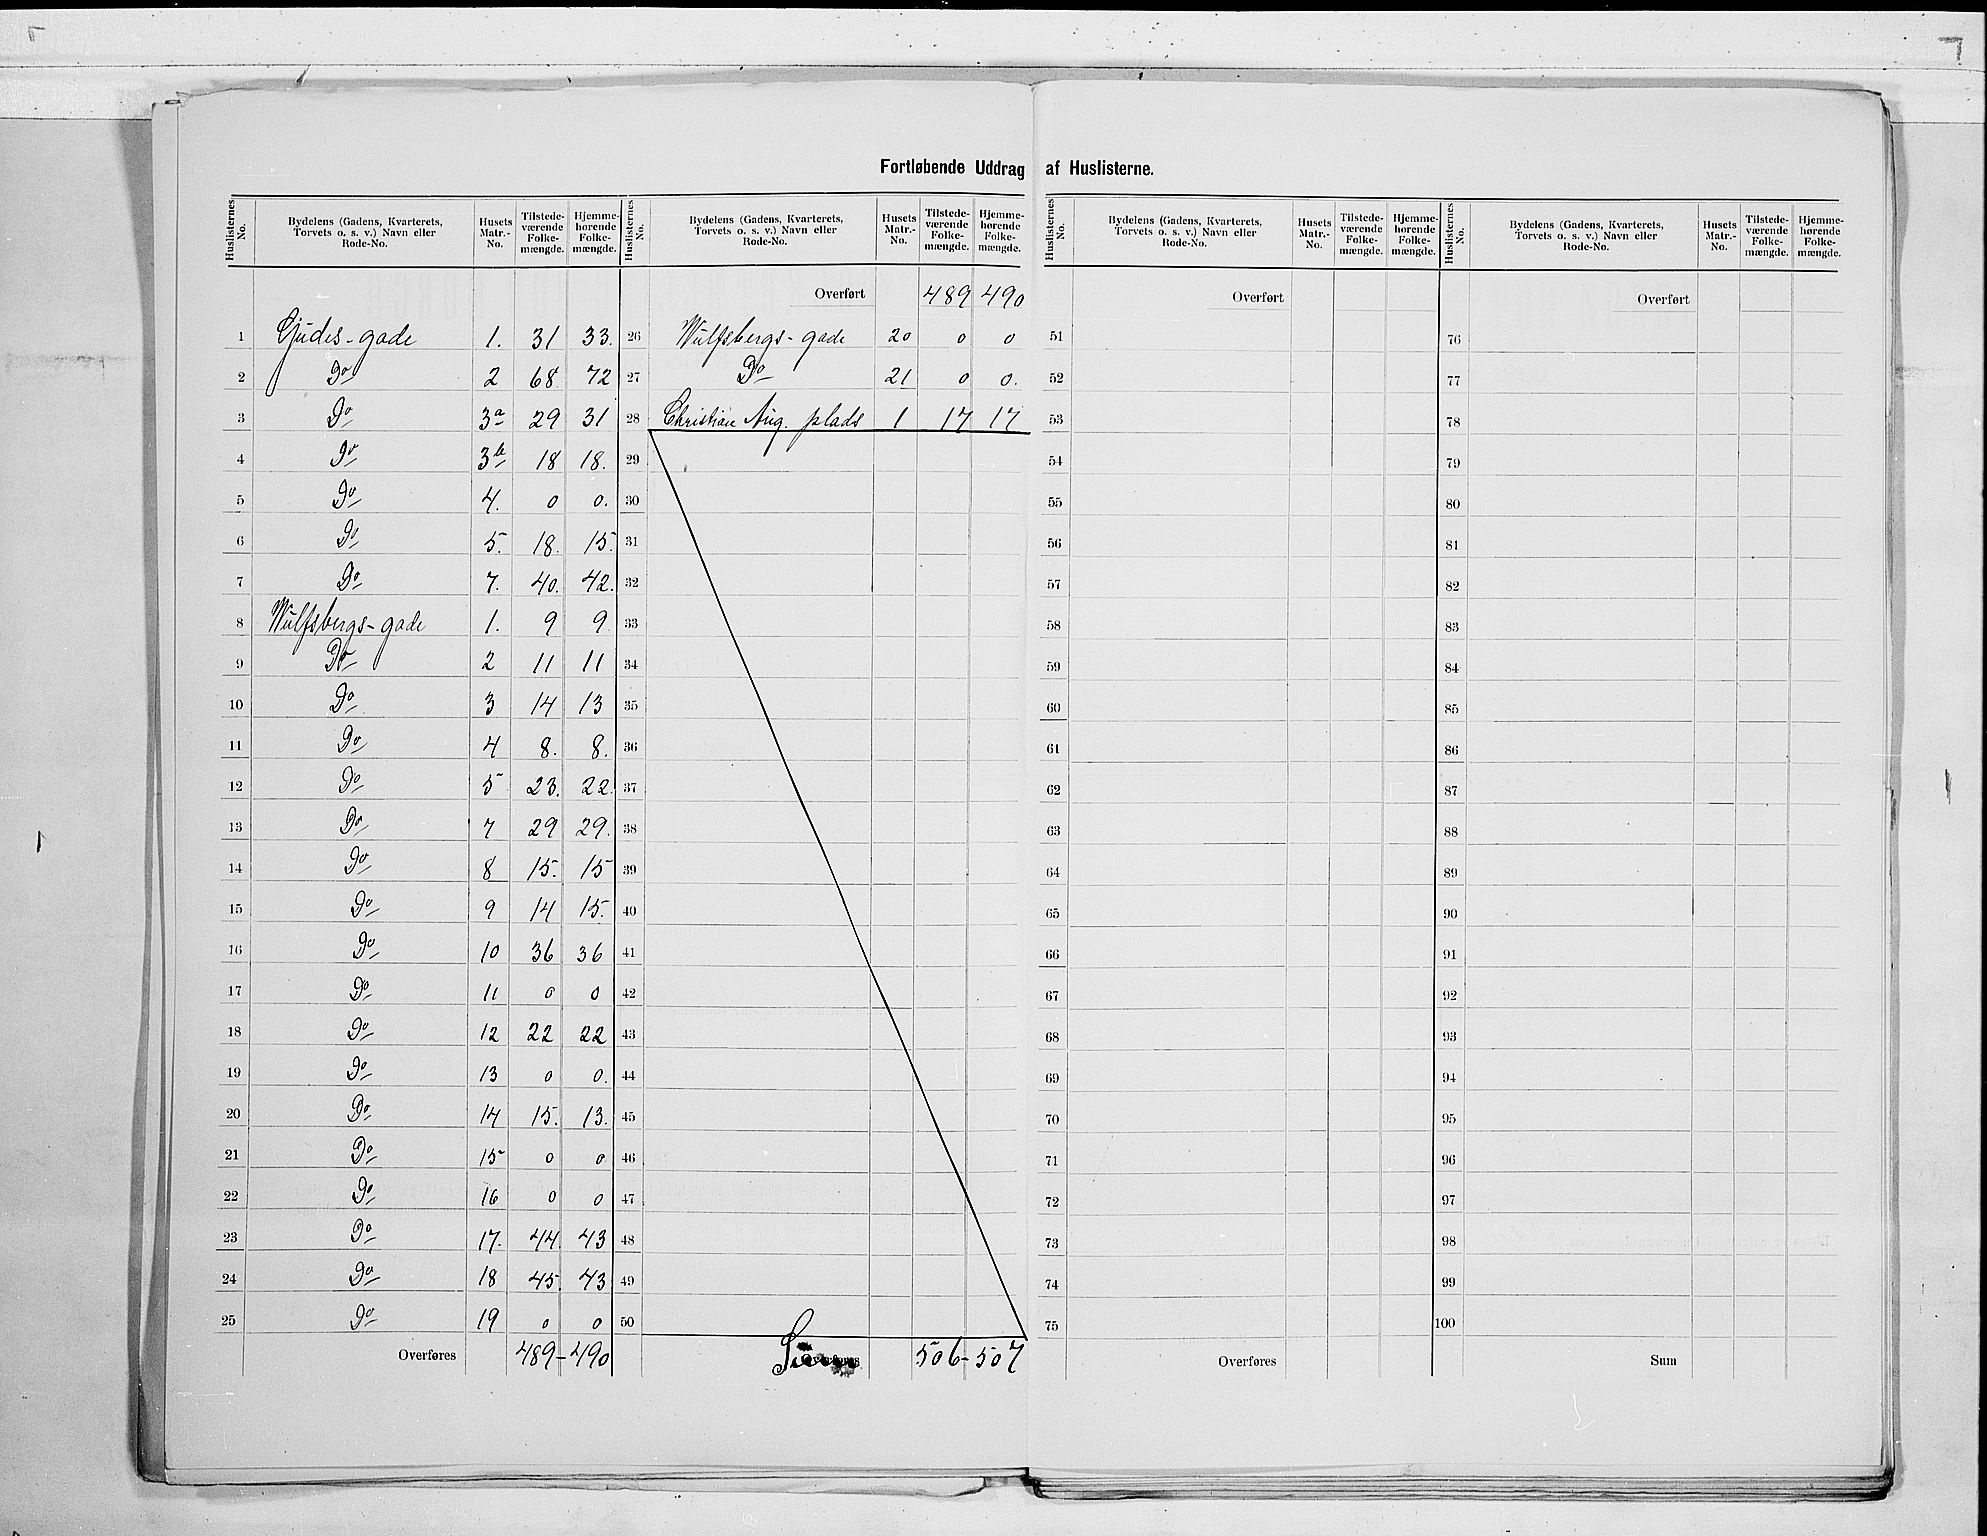 Fortløbende Uddrag af Huslisterne.
Huslisternes No. Bydelens (Gadens, Kvarterets, Torvets o. s. v.) Navn eller Rode-No. Husets Matr.-No. Tilstedeværende Folkemængde. Hjemmehørende Folkemængde.
1 Gjudes-gade 1. 31 33.
2 Do 2 68 72
3 Do 3a 29 31
4 Do 3b 18 18.
5 Do 4. 0 0.
6 Do 5. 18. 15.
7 Do 7. 40. 42.
8 Wulfsbergs-gade 1. 9 9
9 Do 2 11 11
10 Do 3 14 13
11 Do 4 8. 8.
12 Do 5 23. 22.
13 Do 7 29 29.
14 Do 8 15. 15
15 Do 9 14 15.
16 Do 10 36 36
17 Do 11 0 0
18 Do 12 22 22
19 Do 13 0 0.
20 Do 14 15. 13.
21 Do 15 0 0
22 Do 16 0 0
23 Do 17. 44 43
24 Do 18 45 43
25 Do 19 0 0
Overføres 489-490
Huslisternes No. Bydelens (Gadens, Kvarterets, Torvets o. s. v.) Navn eller Rode-No. Husets Matr.-No. Tilstedeværende Folkemængde. Hjemmehørende Folkemængde.
Overført 489 490
26 Wulfsbergs-gade 20 0 0
27 Do 21 0 0.
28 Christian Aug. plads 1 17 17
29
30
31
32
33
34
35
36
37
38
39
40
41
42
43
44
45
46
47
48
49
50
Sum Overføres 506-507
Huslisternes No. Bydelens (Gadens, Kvarterets, Torvets o. s. v.) Navn eller Rode-No. Husets Matr.-No. Tilstedeværende Folkemængde. Hjemmehørende Folkemængde.
Overført
51
52
53
54
55
56
57
58
59
60
61
62
63
64
65
66
67
68
69
70
71
72
73
74
75
Overføres
Huslisternes No. Bydelens (Gadens, Kvarterets, Torvets o. s. v.) Navn eller Rode-No. Husets Matr.-No. Tilstedeværende Folkemængde. Hjemmehørende Folkemængde.
Overført
76
77
78
79
80
81
82
83
84
85
86
87
88
89
90
91
92
93
94
95
96
97
98
99
100
Sum